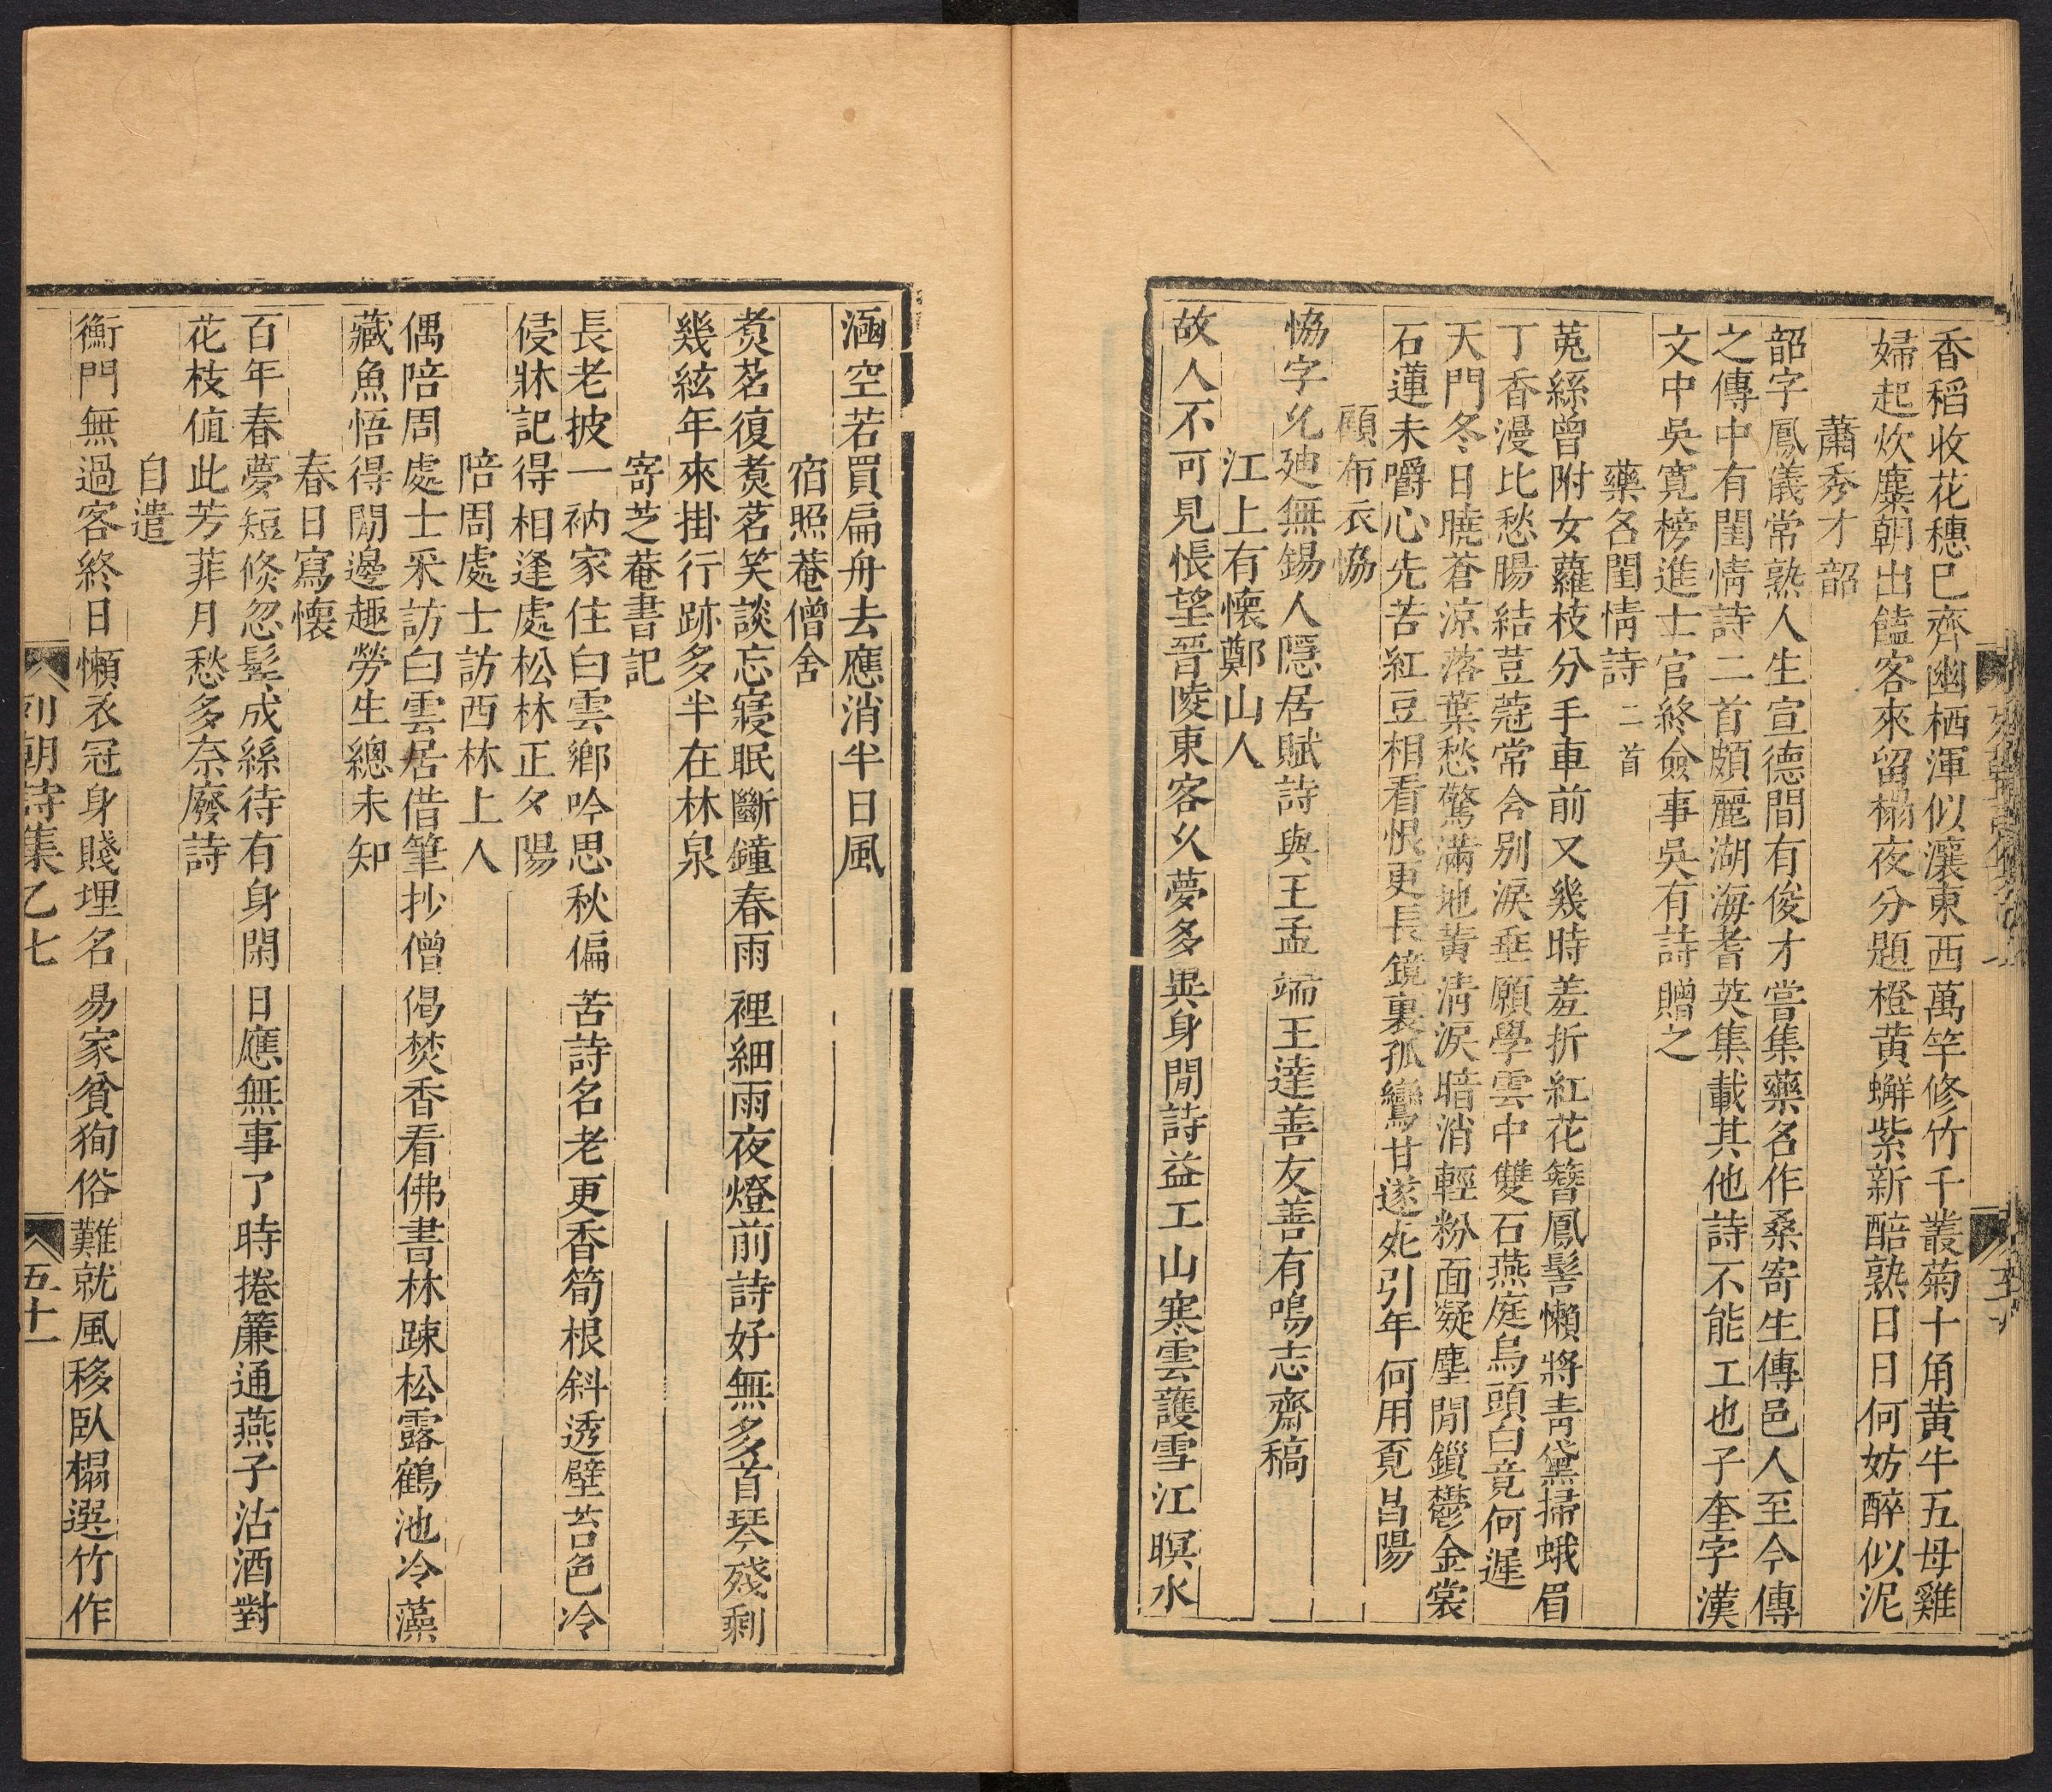 香稻收花穗已齊幽栖渾似瀼東西萬竿修竹千叢菊十角黃牛五母雞
婦起炊麋朝出饁客來留榻夜分題橙黃蠏紫新醅熟日日何妨醉似泥
蕭秀才韶
韶字鳳儀常熟人生宣德間有俊才嘗集藥名作桑寄生傳邑人至今傳
之傳中有閨情詩二首頗麗湖海耆英集載其他詩不能工也子奎字漢
文中吳寛榜進士官終僉事吳有詩贈之
藥名閨情詩二首
菟絲曾附女蘿枝分手車前又幾時羞折紅花簪鳳髻懶將青黛掃蛾眉
丁香漫比愁腸結荳蔻常含別淚垂願學雲中雙石燕庭烏頭白竟何遲
天門冬日曉蒼涼落葉愁驚滿地黃清淚暗消輕粉面凝塵閒鎖鬱金裳
石蓮未嚼心先苦紅豆相看恨更長鏡裏孤鸞甘遂死引年何用覓昌陽
顧布衣協
恊字允廸無錫人隱居賦詩與王孟端王達善友善有鳴志齋稿
江上有懷鄭山人
故人不可見悵望晉陵東客久夢多異身閒詩益工山寒雲護雪江暝水
涵空若買扁舟去應消半日風
宿照菴僧舍
煑茗復煑茗笑談忘寢眠斷鐘春雨裡細雨夜燈前詩好無多首琴殘剩
幾絃年來掛行跡多半在林泉
寄芝菴書記
長老披一衲家住白雲鄉吟思秋偏苦詩名老更香筍根斜透壁苔色冷
侵牀記得相逢處松林正夕陽
陪周處士訪西林上人
偶陪周處士來訪白雲居借筆抄僧偈焚香看佛書林踈松露鶴池冷藻
藏魚悟得閒邊趣勞生總未知
春日寫懷
百年春夢短倐忽髩成絲待有身閑日應無事了時捲簾通燕子沽酒對
花枝值此芳菲月愁多奈廢詩
自遣
衡門無過客終日懶衣冠身賤埋名易家貧狥俗難就風移臥榻選竹作
列朝詩集乙七 五十一